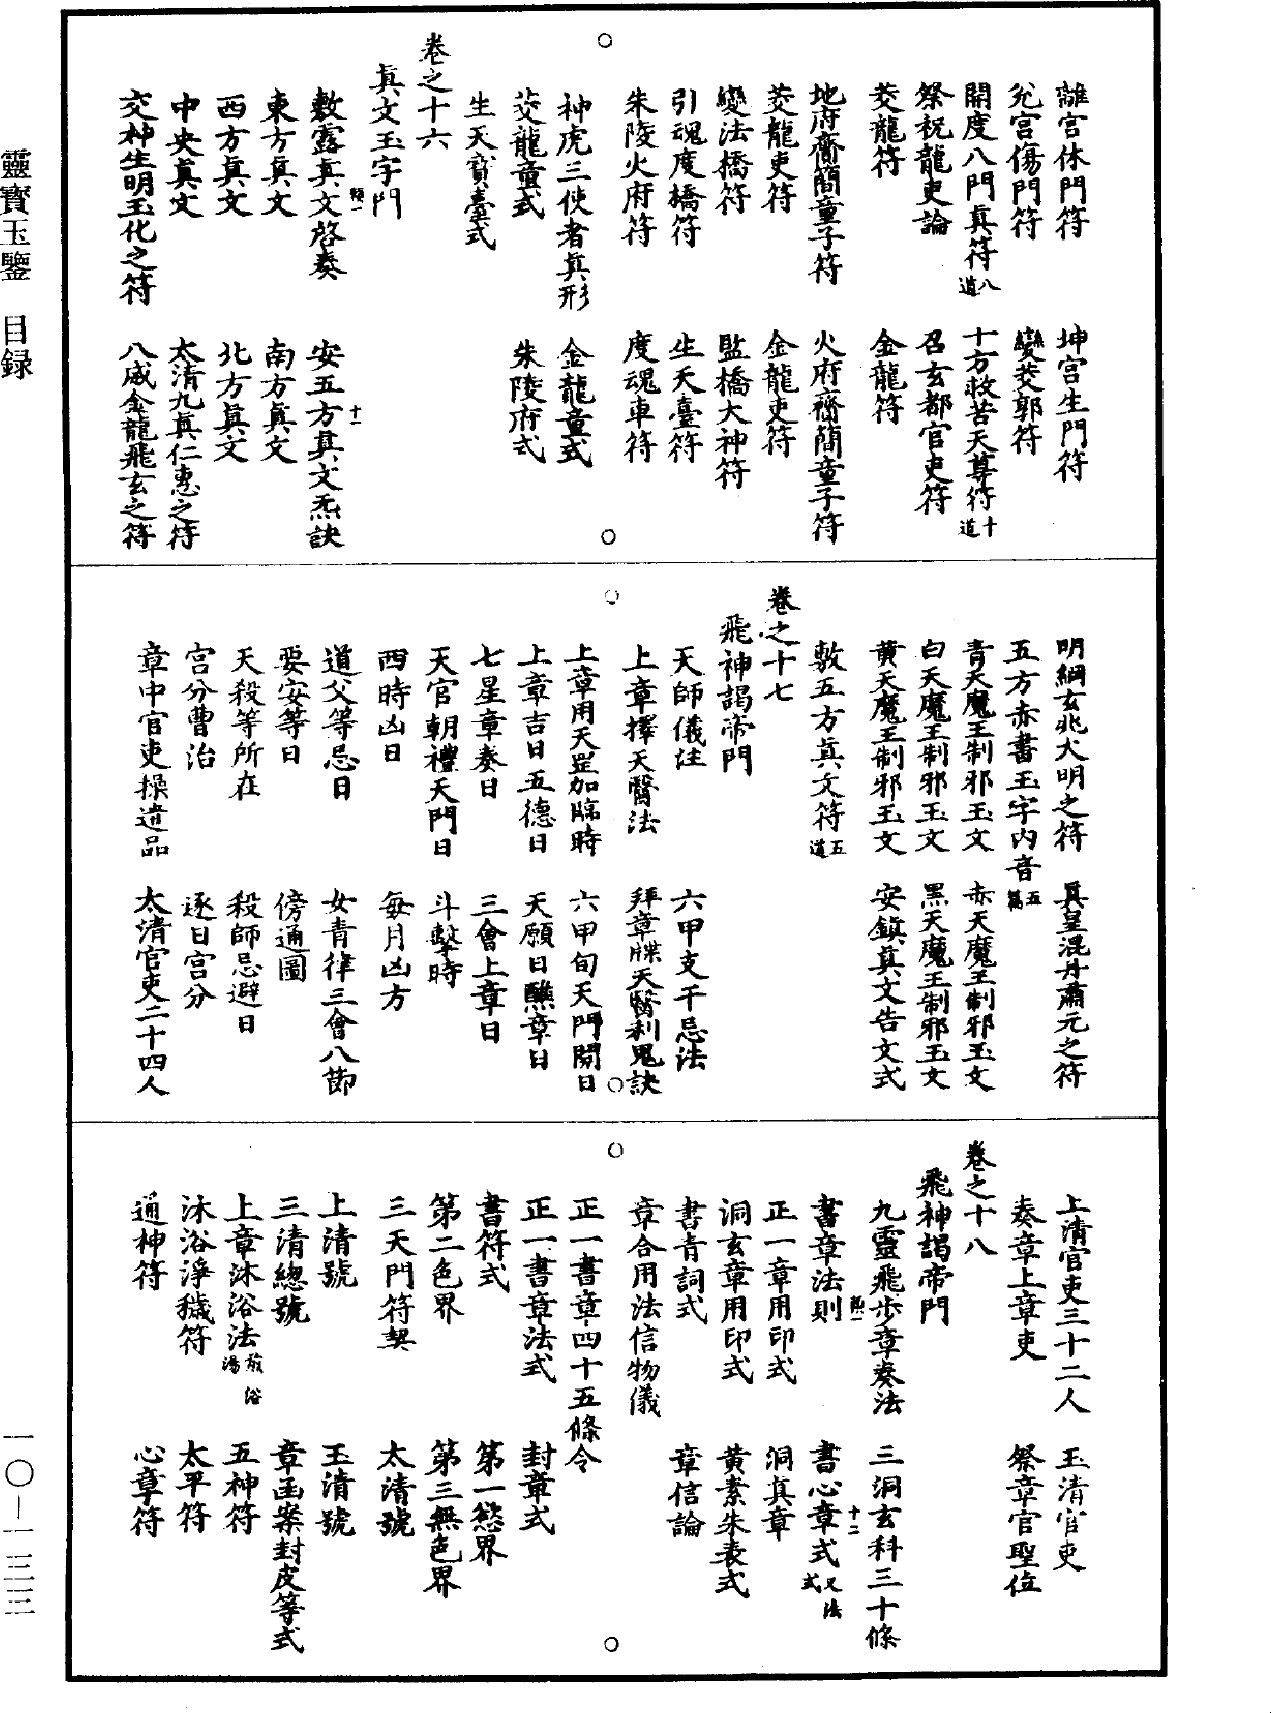 離宮休門符　坤宮生門符
兊宮傷門符　變茭郭符
開度八門真符八道　十方救苦天尊符十道
祭祝龍吏論　召玄都官吏符
茭龍符　金龍符
地府齋簡童子符　火府齋簡童子符
茭龍吏符　金龍吏符
變法橋符　監橋大神符
引魂度橋符　生天臺符
朱陵火府符　度魂車符
神虎三使者真形　金龍童式
茭龍童式　朱陵府式
生天寶臺式
卷之十六
真文玉字門
敷露真文啓奏　安五方真文炁訣
東方真文　南方真文
西方真文　北方真文
中央真文　太清九真仁惠之符
交神生明玉化之符　八威金龍飛玄之符
明綱玄兆大明之符　真皇混丹肅元之符
五方赤書玉字内音五篇
青天魔王制邪玉文　赤天魔王制邪玉文
白天魔王制邪玉文　黑天魔王制邪玉文
黃天魔王制邪玉文　安鎮真文告文式
敷五方真文符五道
卷之十七
飛神謁帝門
天師儀注　六甲支干忌法
上章擇天醫法　拜章牒天醫利鬼訣
上章用天罡加臨時　六甲旬天門開日
上章吉日五德日　天願日醮章日
七星章奏日　三會上章日
天官朝禮天門日　斗擊時
四時凶日　每月凶方
道父等忌日　女青律三會八節
要安等日　傍通圖
天殺等所在　殺師忌避日
宮分曹治　逐日宮分
章中官吏操遣品　太清官吏二十四人
上清官吏三十二人　玉清官吏
奏章上章吏　祭章官聖位
卷之十八
飛神謁帝門
九靈飛步章奏法　三洞玄科三十條
書章法則　書心章式又法式
正一章用印式　洞真章
洞玄章用印式　黃素朱表式
書青詞式　章信論
章合用法信物儀
正一書章四十五條令
正一書章法式　封章式
書符式　第一慾界
第二色界　第三無色界
三天門符契　太清號
上清號　玉清號
三清總號　章函案封皮等式
上章沐浴法　五神符
沐浴淨穢符　太平符
通神符　心章符
靈寶玉鑒　目録
一〇－一三三